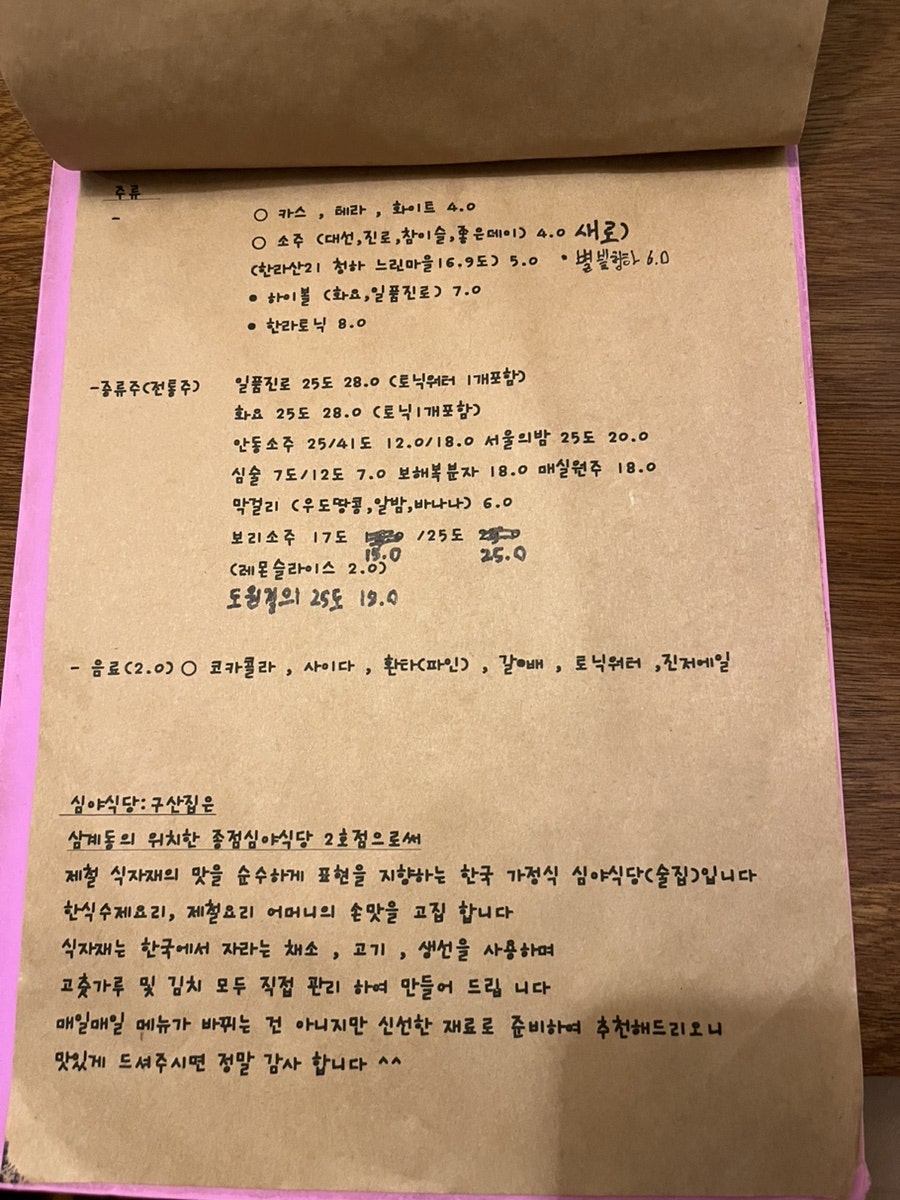 주류
-
○ 카스 , 테라 , 화이트 4.0
○ 소주 (대선,진로,참이슬,좋은데이) 4.0 새로)
(한라산21 청하 느린마을16.9도) 5.0 • 별빛청하 6.0
• 하이볼 (화요,일품진로) 7.0
• 한라토닉 8.0
-증류주(전통주) 일품진로 25도 28.0 (토닉워터 1개포함)
화요 25도 28.0 (토닉1개포함)
안동소주 25/41도 12.0/18.0 서울의밤 25도 20.0
심술 7도/12도 7.0 보해복분자 18.0 매실원주 18.0
막걸리 (우도땅콩,알밤,바나나) 6.0
보리소주 17도 /25도
15.0 25.0
(레몬슬라이스 2.0)
도원결의 25도 19.0
- 음료(2.0) ○ 코카콜라 , 사이다 , 환타(파인) , 갈아배 , 토닉워터 ,진저에일
심야식당:구산집은
삼계동의 위치한 종점심야식당 2호점으로써
제철 식자재의 맛을 순수하게 표현을 지향하는 한국 가정식 심야식당(술집)입니다
한식수제요리, 제철요리 어머니의 손맛을 고집 합니다
식자재는 한국에서 자라는 채소 , 고기 , 생선을 사용하며
고춧가루 및 김치 모두 직접 관리 하여 만들어 드립 니다
매일매일 메뉴가 바뀌는 건 아니지만 신선한 재료로 준비하여 추천해드리오니
맛있게 드셔주시면 정말 감사 합니다 ^^